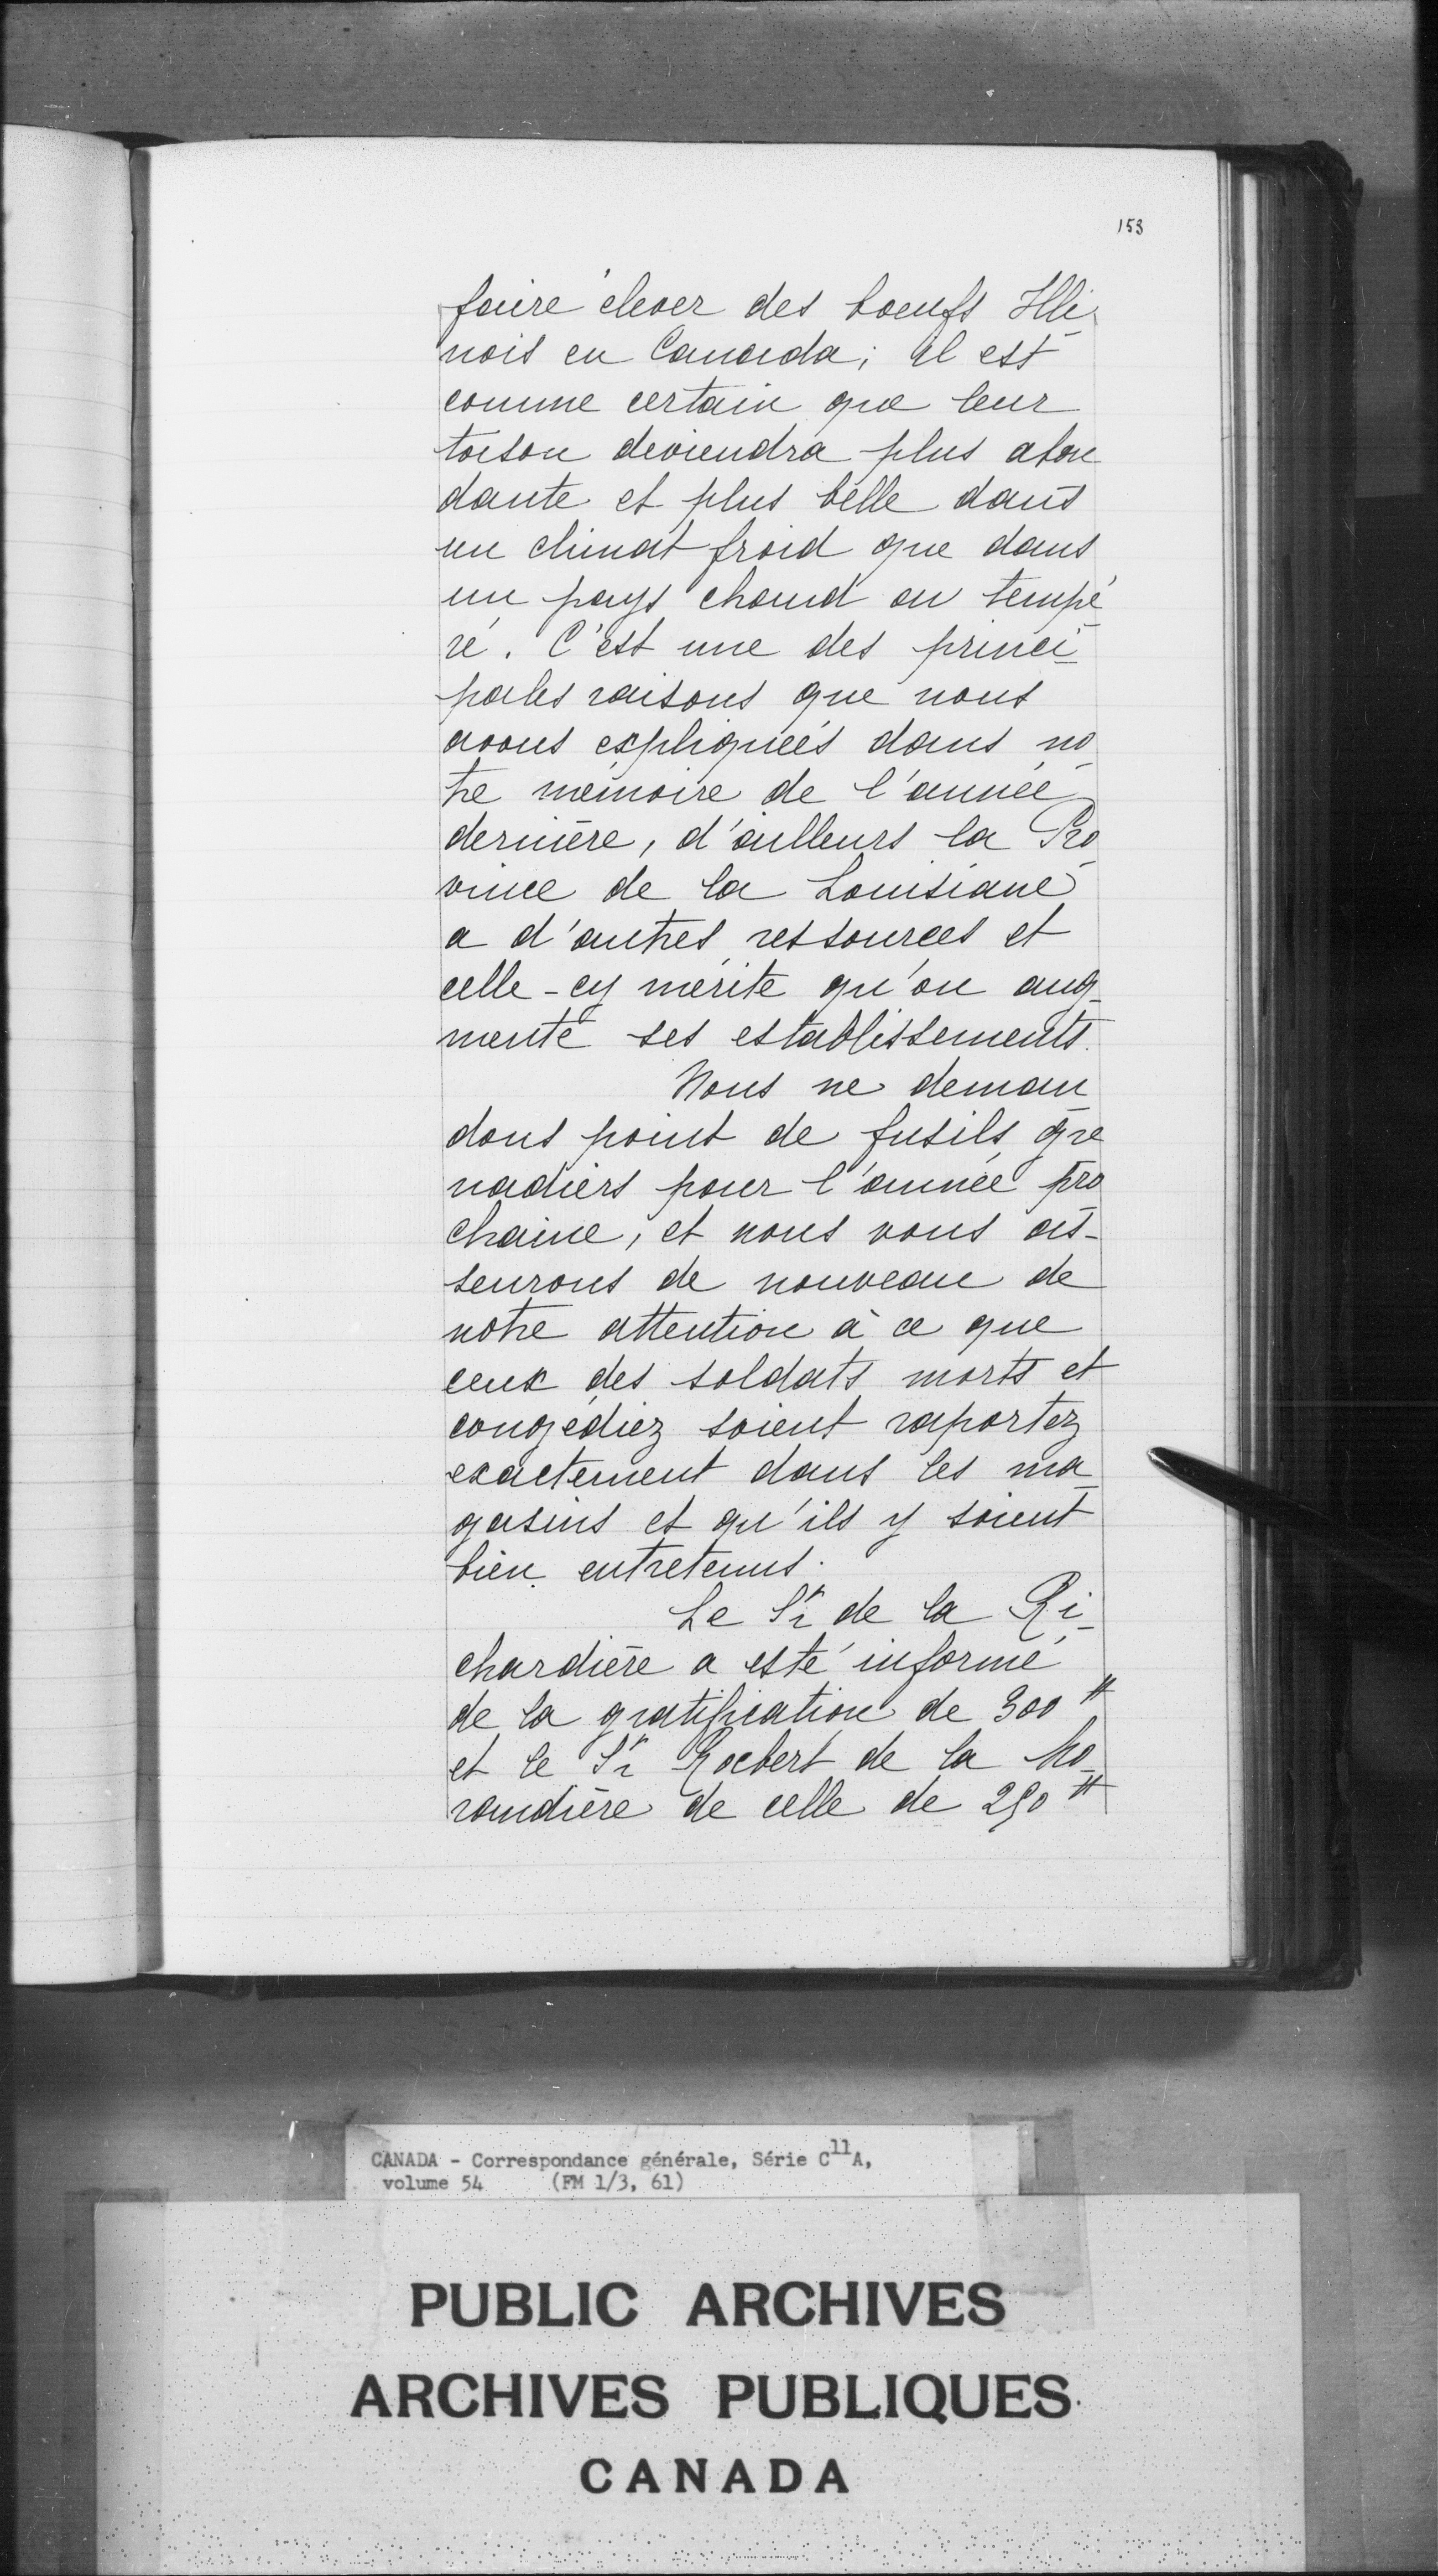 153
faire élever des boeufs Illi-
nois en Canada; il est
comme certain que leur
toison deviendra plus abon
dante et plus belle dans
un climat froid que dans
un pays chaud ou tempé
ré. C'est une des princi-
pales raisons que nous
avons expliquées dans no-
tre mémoire de l'année
dernière, d'ailleurs la Pro-
vince de la Louisiane
a d'autres ressources et
celle-cy mérite qu'on aug-
mente ses establissements.
Nous ne deman-
dons point de fusils gre
nadiers pour l'année pro
chaine, et nous vous as-
seurons de nouveau de
notre attention à ce que
ceux des soldats morts et
congédiez soient raportez
exactement dans les ma-
gasins et qu'ils y soient
bien entretenus.
Le Sr. de la Ri-
chardière a esté informé
de la gratification de 300 ₶
et le Sr. Rocbert de la Mo-
randière de celle de 250 ₶
CANADA - Correspondance générale, Série C11A,
volume 54 (FM 1/3, 61)
PUBLIC ARCHIVES
ARCHIVES PUBLIQUES
CANADA